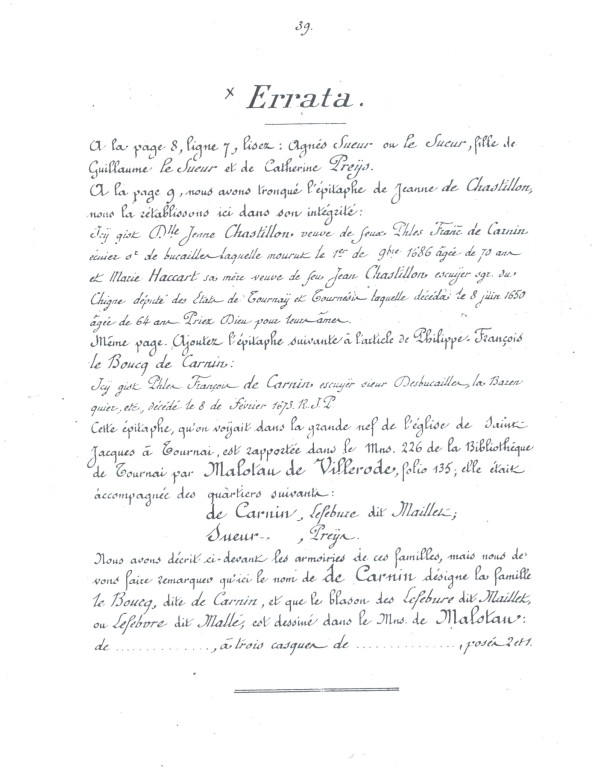 39.
x Errata.
A la page 8, ligne 7, lisez : Agnès Sueur ou le Sueur, fille de
Guillaume le Sueur et de Catherine Preÿs.
A la page 9, nous avons tronqué l'épitaphe de Jeanne de Chastillon,
nous la rétablissons ici dans son intégrité :
Icÿ gist Dlle Jenne Chastillon veuve de feux Phles Franc de Carnin
écuier sr de bucailles laquelle mourut le 1er de 9bre 1686 âgée de 70 ans
et Marie Haccart sa mère veuve de feu Jean Chastillon escuÿer sgr. du
Chigne député des Etats de Tournaÿ et Tournésis laquelle décéda le 8 juin 1650
âgée de 64 ans Priez Dieu pour leurs âmes.
Même page. Ajoutez l'épitaphe suivante à l'article de Philippe-François
le Boucq de Carnin :
Icÿ gist Phles François de Carnin escuÿer sieur Desbucailles, la Baren
quier, etc., décédé le 8 de Février 1673. R.I.P
Cette épitaphe, qu'on voyait dans la grande nef de l'église de Saint
Jacques à Tournai, est rapportée dans le Mns. 226 de la Bibliothèque
de Tournai par Malotau de Villerode, folio 135 ; elle était
accompagnée des quartiers suivants :
de Carnin, Lefebure dit Maillet ;
Sueur.. , Preÿs.
Nous avons décrit ci-devant les armoiries de ces familles, mais nous de-
vons faire remarquer qu'ici le nom de de Carnin désigne la famille
le Boucq, dite de Carnin, et que le blason des Lefebure dit Maillet,
ou Lefebvre dit Mallé, est dessiné dans le Mns. de Malotau :
de ..............., à trois casques de ..............., posés 2 et 1.